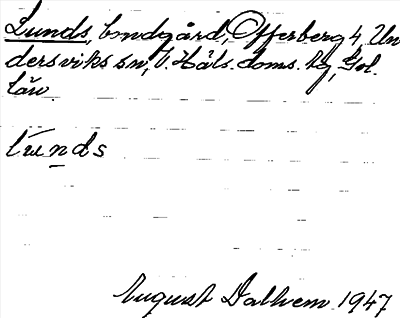 Lunds, bondgård, Offerberg 4, Un
dersviks sn, V. Häls. doms. hg, Gvl.
län.
lunds
August Dalhem 1947